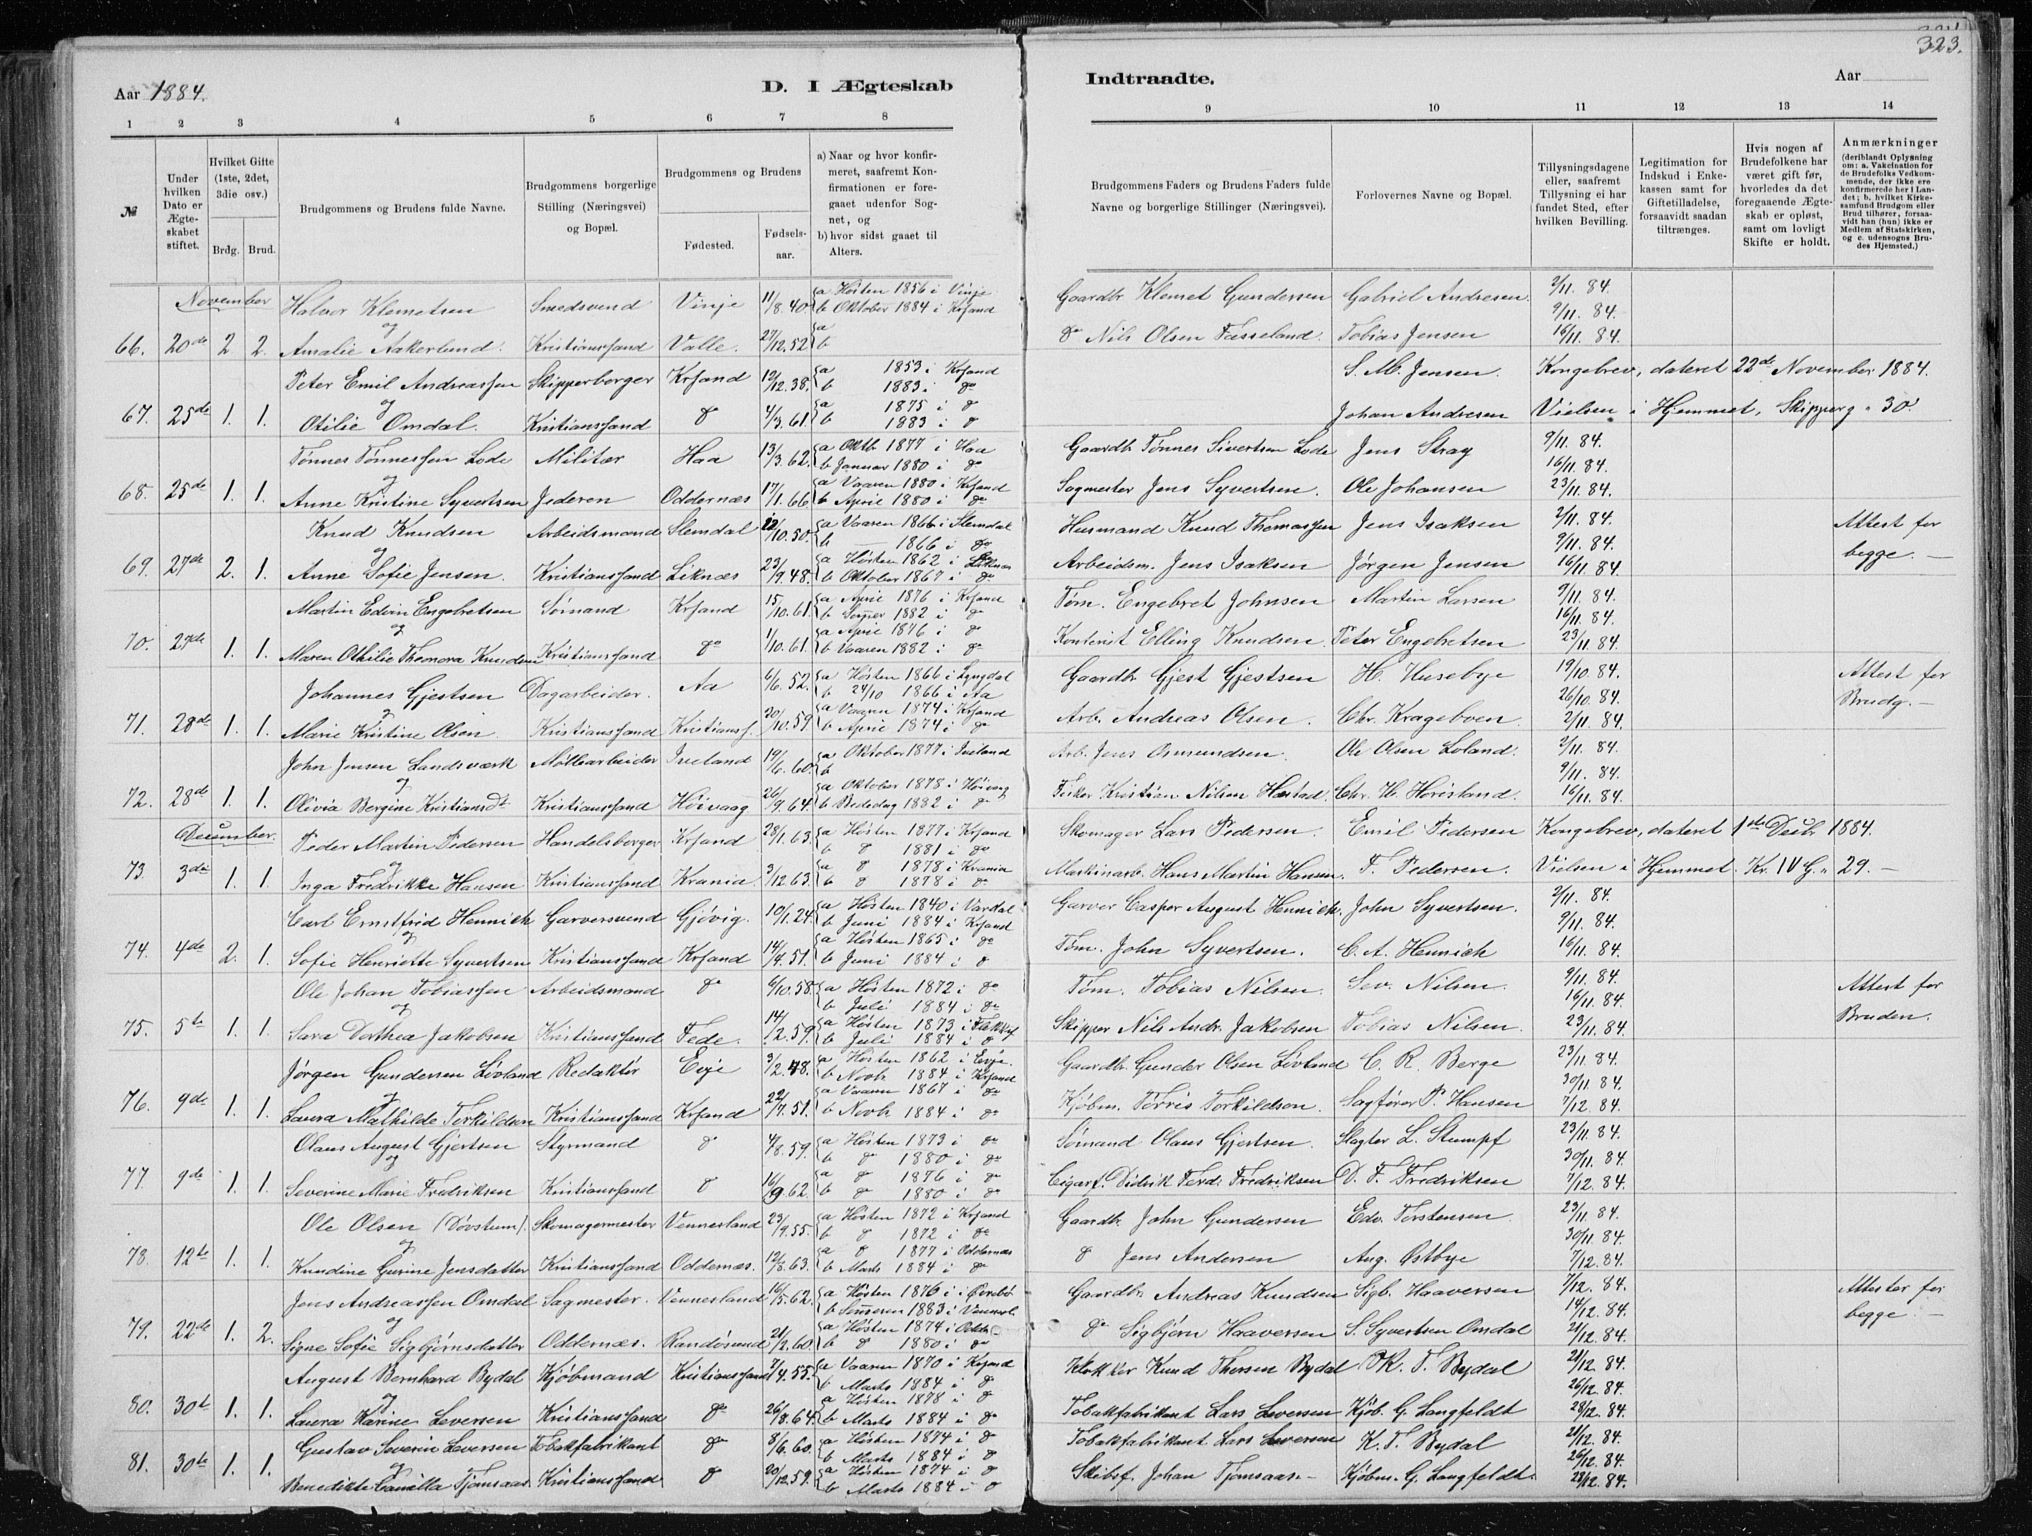 323.
Aar 1884. D. I Ægteskab Indtraadte. Aar
1 2 3 4 5 6 7 8 9 10 11 12 13 14
№
Under hvilken Dato er Ægteskabet stiftet.
Hvilket Gifte (1ste, 2det, 3die osv.)
Brdg. Brud.
Brudgommens og Brudens fulde Navne.
Brudgommens borgerlige Stilling (Næringsvei) og Bopæl.
Brudgommens og Brudens
Fødested. Fødselsaar.
a) Naar og hvor konfirmeret, saafremt Konfirmationen er foregaaet udenfor Sognet, og
b) hvor sidst gaaet til Alters.
Brudgommens Faders og Brudens Faders fulde Navne og borgerlige Stillinger (Næringsvei).
Forlovernes Navne og Bopæl.
Tillysningsdagene eller, saafremt Tillysning ei har fundet Sted, efter hvilken Bevilling.
Legitimation for Indskud i Enkekassen samt for Giftetilladelse, forsaavidt saadan tiltrænges.
Hvis nogen af Brudefolkene har været gift før, hvorledes da det foregaaende Ægteskab er opløst, samt om lovligt Skifte er holdt.
Anmærkninger (deriblandt Oplysning om: a. Vakcination for de Brudefolks Vedkommende, der ikke ere konfirmerede her i Landet; b. hvilket Kirkesamfund Brudgom eller Brud tilhører, forsaavidt han (hun) ikke er Medlem af Statskirken, og c. udensogns Brudes Hjemsted.)
November Halvor Klemetsen Smedsvend Vinje 11/8.40. a Høsten 1856 i Vinje b Oktober 1884 i Krsand Gaardbr. Klemet Gundersen Gabriel Andresen 2/11. 84. 9/11. 84.
66. 20de 2 2. og Amalie Aakerlund. Kristianssand Valle. 27/12.52 a b do Nils Olsen Fasseland Tobias Jensen 16/11 84.
Peter Emil Andreassen Skipperborger Krsand 12/12.38. a 1853 i Krsand b 1883 i do S. M. Jensen. Kongebrev, dateret 22de November 1884.
67. 25de 1. 1. og Otilie Omdal. Kristianssand do 4/3.61. a 1875 i do b 1883 i do Johan Andresen Vielsen i Hjemmet, Skipperg. 30.
Tønnes Tønnessen Lode Militær Haa 13/3.62. a Oktb 1877 i Haa b Januar 1880 i do Gaardbr. Tønnes Sivertsen Lode Jens Stray 9/11. 84. 16/11. 84.
68. 25de 1. 1. og Anne Kristine Syvertsen Jederen Oddernæs 17/1.66. a Vaaren 1880 i Krsand b April 1880 i do Sagmester Jens Syvertsen. Ole Johansen 23/11. 84.
Knud Knudsen Arbeidsmand Slemdal 12/10.50. a Vaaren 1866 i Slemdal b 1866 i do Husmand Knud Thomassen Jens Isaksen 2/11. 84. 9/11. 84. Attest for begge.
69. 27de 2. 1. og Anne Sofie Jensen. Kristianssand Liknæs 23/9.48. a Høsten 1862 i Liknæs b Oktober 1867 i do Arbeidsm. Jens Isaksen Jørgen Jensen 16/11. 84.
Martin Edvin Engebretsen Sømand Krsand 15/10.61. a April 1876 i Krsand b 1882 i do Tøm. Engebret Johnsen Martin Larsen 9/11. 84. 16/11. 84.
70. 27de 1. 1. og Maren Othilie Theonora Knudsen Kristianssand do 1/10.61. a April 1876 i do b Vaaren 1882 i do Elling Knudsen Peter Engebretsen 23/11 84.
Johannes Gjestsen Dagarbeider. Aa 6/6.52. a Høsten 1866 i Lyngdal b 24/10 1866 i Aa Gaardbr Gjest Gjestsen H. Husebye 19/10 84. 26/10. 84. Attest for Brudg.
71. 28de 1. 1. og Marie Kristine Olsen Kristianssand Kristianss. 20/10.59. a Vaaren 1874 i Krsand b April 1874 i do Arb. Andreas Olsen. Chr. Krageboen. 2/11. 84.
John Jensen Landsværk Møllearbeider Iveland 19/6.60. a Oktober 1877 i Iveland b Arb. Jens Osmundsen. Ole Olsen Loland. 2/11. 84. 9/11. 84.
72. 28de 1. 1. og Olivia Bergine Kristiansdt. Kristianssand Høivaag 26/9.64. a Oktober 1878 i Høivaag b Bededag 1882 i do Fisker Kristian Nilsen Hæstad. Chr. H. Høiesland. 16/11. 84.
December. Peder Martin Pedersen Handelsborger Krsand 28/1.63. a Høsten 1877 i Krsand b do 1881 i do Skomager Lars Pedersen. Emil Pedersen Kongebrev, dateret 1ste Decb. 1884.
73. 3de 1. 1. og Inga Fredrikke Hansen Kristianssand Krania. 3/12.63. a do 1878 i Krania b do 1878 i do Maskinarb. Hans Martin Hansen. F. Pedersen. Vielsen i Hjemmet. Kr. IV G. 29.
Carl Ernstfrid Hennich Garversvend Gjøvig. 10/1.24. a Høsten 1840 i Vardal b Juni 1884 i Krsand Garver Casper August Hennich. John Syvertsen. 2/11. 84. 9/11. 84.
74. 4de 2. 1. og Sofie Henriette Syvertsen Kristianssand Krsand 14/4.51. a Høsten 1865 i do b Juni 1884 i do Tøm. John Syvertsen. C. A. Hennich 16/11 84.
Ole Johan Tobiassen Arbeidsmand do 6/10.58. a Høsten 1872 i do b Juli 1884 i do Tøm. Tobias Nilsen. Sev. Nilsen. 9/11. 84. 16/11. 84. Attest for Bruden.
75. 5te 1. 1. og Sara Dorthea Jakobsen Kristianssand Fede. 14/2.59. a Høsten 1873 i b Juli 1884 i do Skipper Nils Andr. Jakobsen Tobias Nilsen. 23/11. 84.
Jørgen Gundersen Løvland Redaktør Evje 3/2.48. a Høsten 1862 i Evje b Novb. 1884 i Krsand Gaardbr. Gunder Olsen Løvland C. R. Berge 23/11. 84. 30/11. 84.
76. 9de 1. 1. og Laura Mathilde Terkildsen Kristianssand Krsand 22/7.51. a Vaaren 1867 i do b Novb. 1884 i do Kjøbm. Tørris Torkildsen. Sagfører P. Hansen 7/12. 84.
Olaus August Gjertsen Styrmand do 4/8.59. a Høsten 1873 i do b do 1880 i do Sømand Olaus Gjertsen. Slagter L. Stumpf 23/11. 84. 30/11. 84
77. 9de 1. 1. og Severine Marie Fredriksen Kristianssand do 16/9.62. a do 1876 i do b do 1880 i do Cigarf. Didrik Ferd. Fredriksen D. F. Fredriksen 7/12. 84.
Ole Olsen (Døvstum). Skomagermester Vennesland 23/9.55. a Høsten 1872 i Krsand b do 1872 i do Gaardbr. John Gundersen Edv. Torstensen. 23/11. 84. 30/11. 84
78. 12te 1. 1. og Knudine Gurine Jensdatter Kristianssand Oddernæs. 12/8.63. a do 1877 i Oddernæs b Marts 1884 i do do Jens Andersen Aug. Østbye 7/12. 84.
Jens Andreassen Omdal Sagmester. Vennesland 16/5.62. a Høsten 1876 i Øvrebø b Sommeren 1883 i Vennesl. Gaardbr. Andreas Knudsen Sigb. Haaversen 7/12. 84. 14/12. 84. Attester for begge
79. 22de 1. 2. og Signe Sofie Sigbjørnsdatter Oddernæs. Randøsund 21/2.60. a Høsten 1874 i Oddr b do 1880 i do do Sigbjørn Haaversen S. Syvertsen Omdal 21/12. 84.
August Bernhard Bydal Kjøbmand Kristianssand 7/4.55. a Vaaren 1870 i Krsand b Marts 1884 i do Klokker Knud Thorsen Bydal K. T. Bydal 21/12. 84. 26/12. 84.
80. 30te 1. 1. og Laura Karine Leversen Kristianssand do 26/8.64. a Høsten 1878 i do b Marts 1884 i do Tobakfabrikant Lars Leversen Kjøb. G. Langfeldt 28/12. 84.
Gustav Severin Leversen Tobakfabrikant do 8/6.60. a Høsten 1874 i do b Marts 1884 i do Tobakfabrikant Lars Leversen K. T. Bydal 21/12. 84. 26/12. 84.
81. 30te 1. 1. og Benedikte Camilla Tjomsaas Kristianssand. do 20/12.59. a Høsten 1874 i do b Marts 1884 i do Skibsf. Johan Tjomsaas Kjøbm. G. Langfeldt. 28/12. 84.